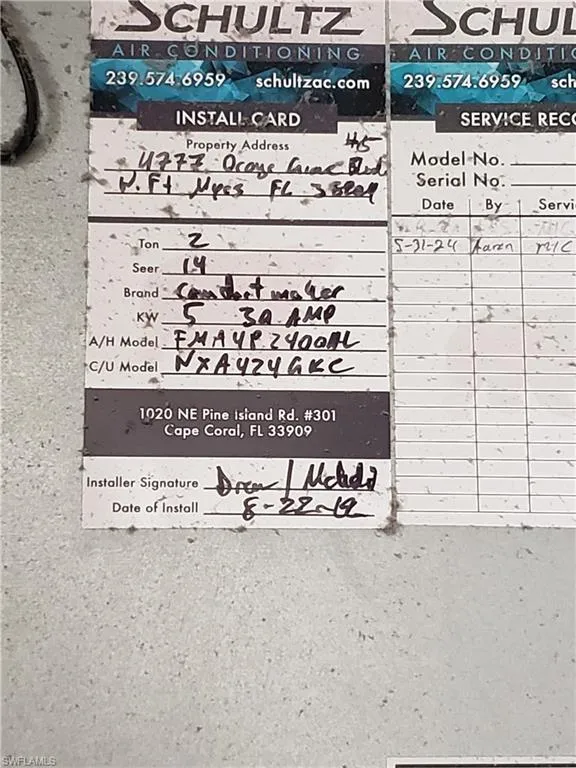 SCHULTZ
AIR CONDITIONING
239.574.6959 schultzac.com
INSTALL CARD
Property Address #5
4777 Orange Grove Blvd
N. Ft Myers FL 33909
Ton 2
Seer 14
Brand Comfort maker
KW 5 30 AMP
A/H Model FMA4P2400AL
C/U Model NXA424GKC
1020 NE Pine Island Rd. #301
Cape Coral, FL 33909
Installer Signature Drew /
Date of Install 8-22-19
SCHUL
AIR CONDITIO
239.574.6959 sch
SERVICE RECO
Model No.
Serial No.
Date By Servi
5-31-24 Aaron M/C
SWFLAMLS